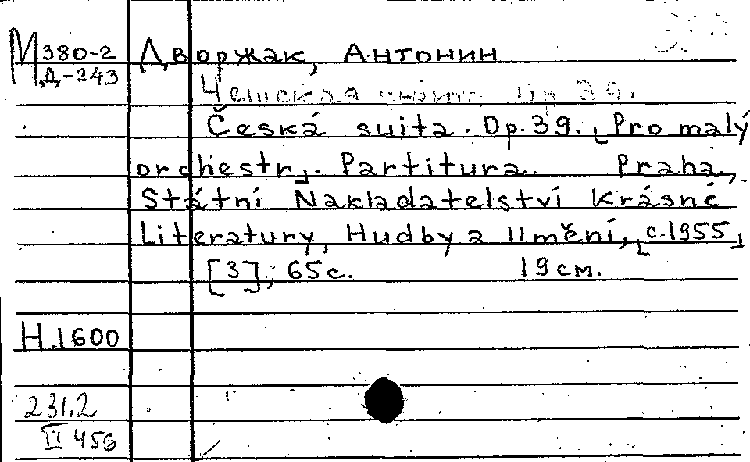 М380-2 Дворжак, Антонин
Д-243
Чешская сюита. Op 39.
Česká suita. Op. 39. [Pro malý
orchestr]. Partitura. Praha,
Státní Nakladatelství Krásné
Literatury, Hudby a Umění, [c.1955]
[3]; 65с. 19 см.
Н.1600
231.2
II 456